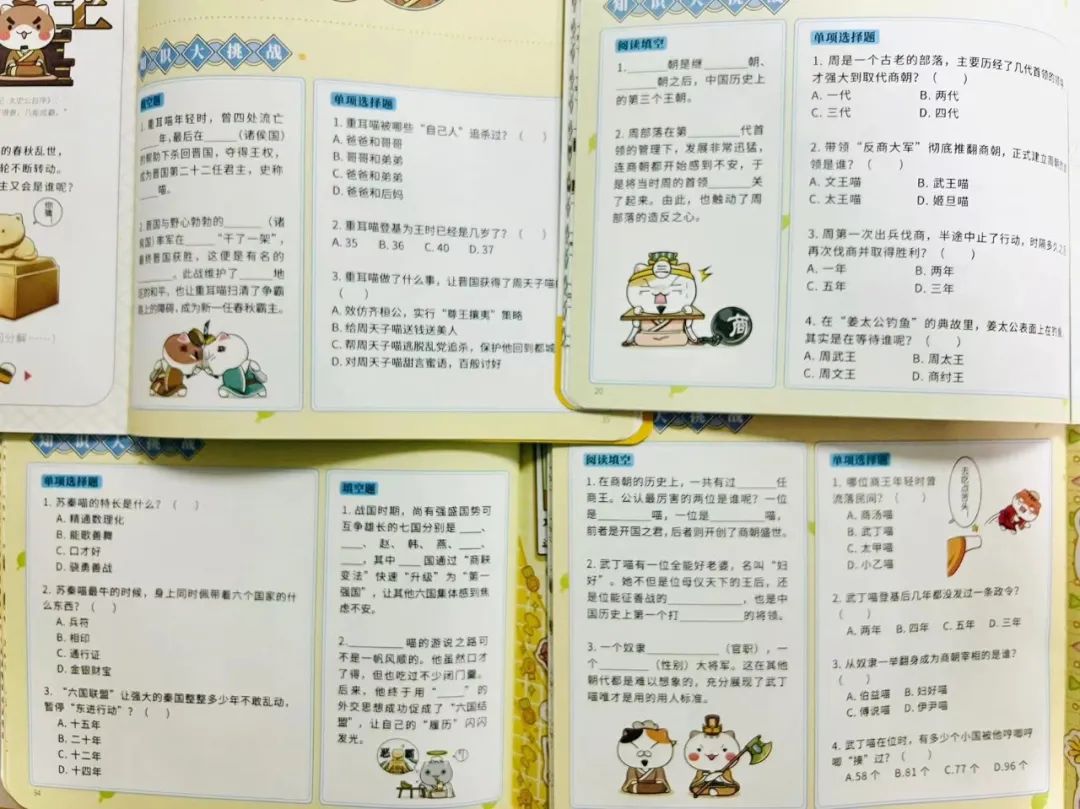 王
的春秋乱世，
轮不断转动。
主又会是谁呢？
你猜！
知识大挑战
填空题
1. 重耳喵年轻时，曾四处流亡
____年,最后在____（诸侯国）
的帮助下杀回晋国，夺得王权，
成为晋国第二十二任君主，史称
____喵。
2. 晋国与野心勃勃的____（诸
侯国）率军在____“干了一架”，
最终晋国获胜，这便是有名的
____。此战维护了____地
区的和平，也让重耳喵扫清了争霸
路上的障碍，成为新一任春秋霸主。
单项选择题
1. 重耳喵被哪些“自己人”追杀过？（ ）
A. 爸爸和哥哥
B. 哥哥和弟弟
C. 爸爸和弟弟
D. 爸爸和后妈
2. 重耳喵登基为王时已经是几岁了？（ ）
A. 35 B. 36 C. 40 D. 37
3. 重耳喵做了什么事，让晋国获得了周天子喵
（ ）
A. 效仿齐桓公，实行“尊王攘夷”策略
B. 给周天子喵送钱送美人
C. 帮周天子喵逃脱乱党追杀，保护他回到都城
D. 对周天子喵甜言蜜语，百般讨好
知识大挑战
阅读填空
1. ____朝是继____朝、
____朝之后，中国历史上
的第三个王朝。
2. 周部落在第____代首
领的管理下，发展非常迅猛，
连商朝都开始感到不安，于
是将当时周的首领____关
了起来。由此，也触动了周
部落的造反之心。
商
20
单项选择题
1. 周是一个古老的部落，主要历经了几代首领的
才强大到取代商朝？（ ）
A. 一代 B. 两代
C. 三代 D. 四代
2. 带领“反商大军”彻底推翻商朝，正式建立周朝的
领是谁？（ ）
A. 文王喵 B. 武王喵
C. 太王喵 D. 姬旦喵
3. 周第一次出兵伐商，半途中止了行动，时隔多久之
再次伐商并取得胜利？（ ）
A. 一年 B. 两年
C. 五年 D. 三年
4. 在“姜太公钓鱼”的典故里，姜太公表面上在钓鱼，
其实是在等待谁呢？（ ）
A. 周武王 B. 周太王
C. 周文王 D. 商纣王
知识大挑战
单项选择题
1. 苏秦喵的特长是什么？（ ）
A. 精通数理化
B. 能歌善舞
C. 口才好
D. 骁勇善战
2. 苏秦喵最牛的时候，身上同时佩带着六个国家的什
么东西？（ ）
A. 兵符
B. 相印
C. 通行证
D. 金银财宝
3. “六国联盟”让强大的秦国整整多少年不敢乱动，
暂停“东进行动”？（ ）
A. 十五年
B. 二十年
C. 十二年
D. 十四年
填空题
1. 战国时期，尚有强盛国势可
互争雄长的七国分别是____、
____、赵、韩、燕、____、
____，其中____国通过“商鞅
变法”快速“升级”为“第一
强国”，让其他六国集体感到焦
虑不安。
2.____喵的游说之路可
不是一帆风顺的。他虽然口才
了得，但也吃过不少闭门羹。
后来，他终于用“____”的
外交思想成功促成了“六国结
盟”，让自己的“履历”闪闪
发光。
大挑战
阅读填空
1. 在商朝的历史上，一共有过____任
商王。公认最厉害的两位是谁呢？一位
是____喵，一位是____喵，
前者是开国之君，后者则开创了商朝盛世。
2. 武丁喵有一位全能好老婆，名叫“妇
好”。她不但是位母仪天下的王后，还
是位能征善战的____，也是中
国历史上第一个打____的将领。
3. 一个奴隶____（官职），一
个____（性别）大将军。这在其他
朝代都是难以想象的，充分展现了武丁
喵唯才是用的用人标准。
单项选择题
1. 哪位商王年轻时曾
流落民间？（ ）
A. 商汤喵
B. 武丁喵
C. 太甲喵
D. 小乙喵
去吃点苦头。
2. 武丁喵登基后几年都没发过一条政令？
（ ）
A. 两年 B. 四年 C. 五年 D. 三年
3. 从奴隶一举翻身成为商朝宰相的是谁？
（ ）
A. 伯益喵 B. 妇好喵
C. 傅说喵 D. 伊尹喵
4. 武丁喵在位时，有多少个小国被他哼唧哼
唧“揍”过？（ ）
A.58 个 B.81 个 C.77 个 D.96 个